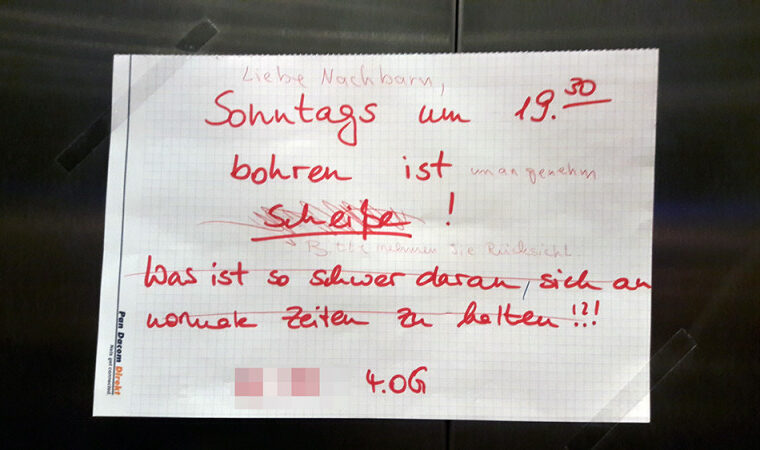 Liebe Nachbarn,
Sonntags um 19.30
bohren ist unangenehm
scheiße !
→ Bitte nehmen Sie Rücksicht.
Was ist so schwer daran, sich an
normale Zeiten zu halten !?!
4.OG
Pan Dacom Direkt
Nets get connected.